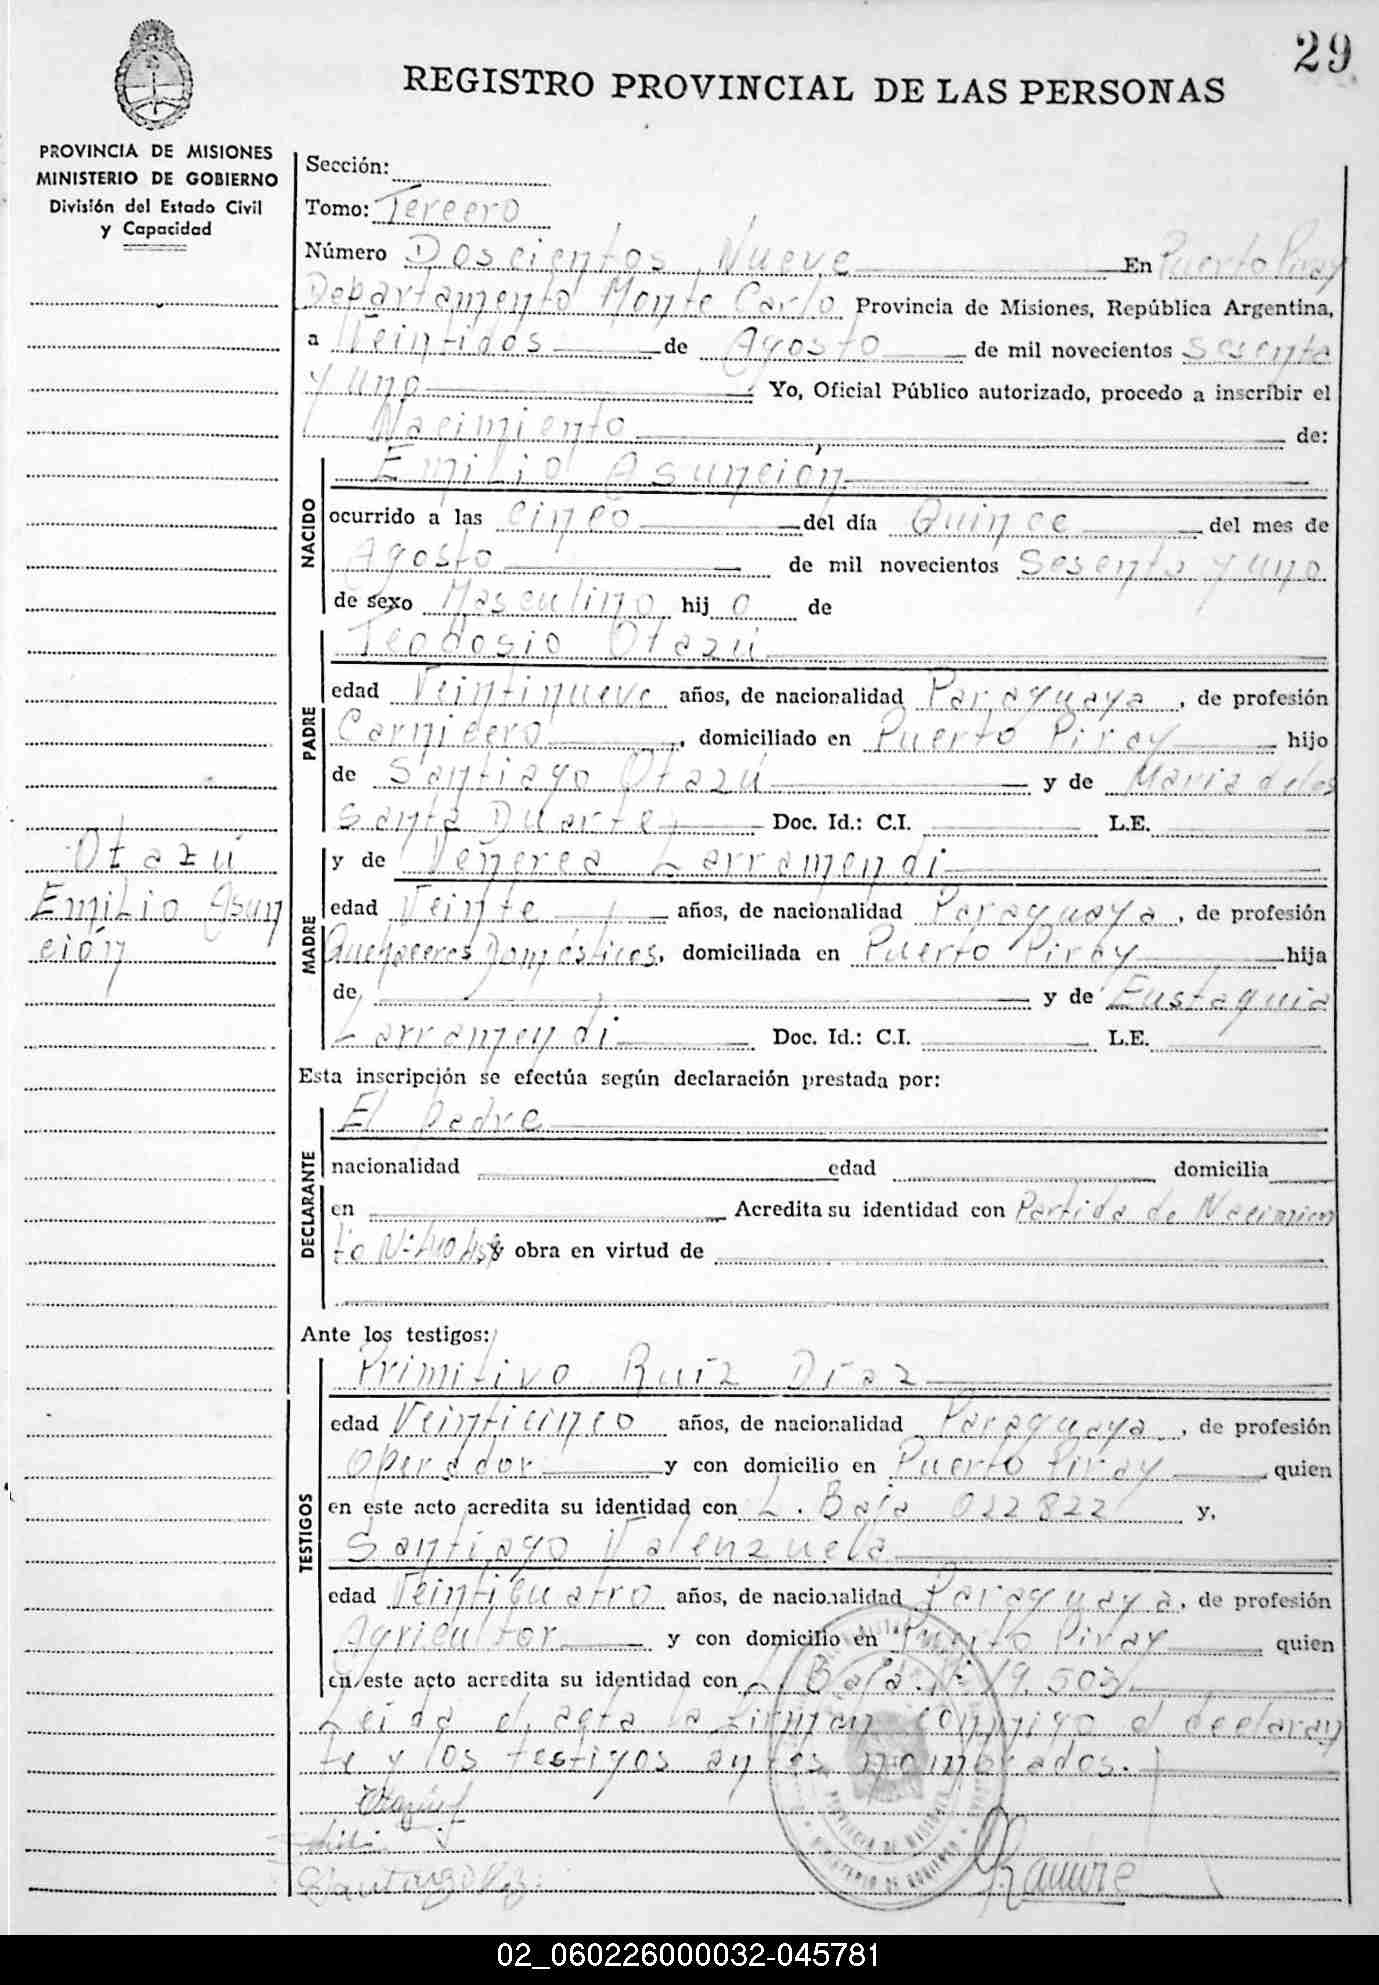 29
REGISTRO PROVINCIAL DE LAS PERSONAS
PROVINCIA DE MISIONES
MINISTERIO DE GOBIERNO
División del Estado Civil
y Capacidad
Otazú
Emilio Asun
ción
Sección:
Tomo: Tercero
Número Doscientos Nueve En Puerto Piray
Departamento Monte Carlo Provincia de Misiones, República Argentina,
a Veintidos de Agosto de mil novecientos sesenta
y uno Yo, Oficial Público autorizado, procedo a inscribir el
Nacimiento de:
NACIDO
Emilio Asunción
ocurrido a las cinco del día Quince del mes de
Agosto de mil novecientos Sesenta y uno
de sexo Masculino hij o de
PADRE
Teodosio Otazú
edad Veintinueve años, de nacionalidad Paraguaya, de profesión
Carnicero, domiciliado en Puerto Piray hijo
de Santiago Otazú y de Maria delos
Santa Duarte Doc. Id.: C.I. L.E.
MADRE
y de Venerea Larramendi
edad Veinte años, de nacionalidad Paraguaya, de profesión
Quehaceres Domésticos, domiciliada en Puerto Piray hija
de y de Eustaquia
Larramendi Doc. Id.: C.I. L.E.
Esta inscripción se efectúa según declaración prestada por:
DECLARANTE
El padre
nacionalidad edad domicilia
en Acredita su identidad con Partida de Nacimien
to Nº obra en virtud de
Ante los testigos:
TESTIGOS
Primitivo Ruíz Díaz
edad Veinticinco años, de nacionalidad Paraguaya, de profesión
Operador y con domicilio en Puerto Piray quien
en este acto acredita su identidad con L. Baja 022822 y,
Santiago Valenzuela
edad Veinticuatro años, de nacionalidad Paraguaya, de profesión
Agricultor y con domicilio en Puerto Piray quien
en este acto acredita su identidad con L. Baja Nº 19.503
Leida el acta la firman conmigo el declaran
te y los testigos antes nombrados.
PROVINCIA DE MISIONES
MINISTERIO DE GOBIERNO
02_060226000032-045781